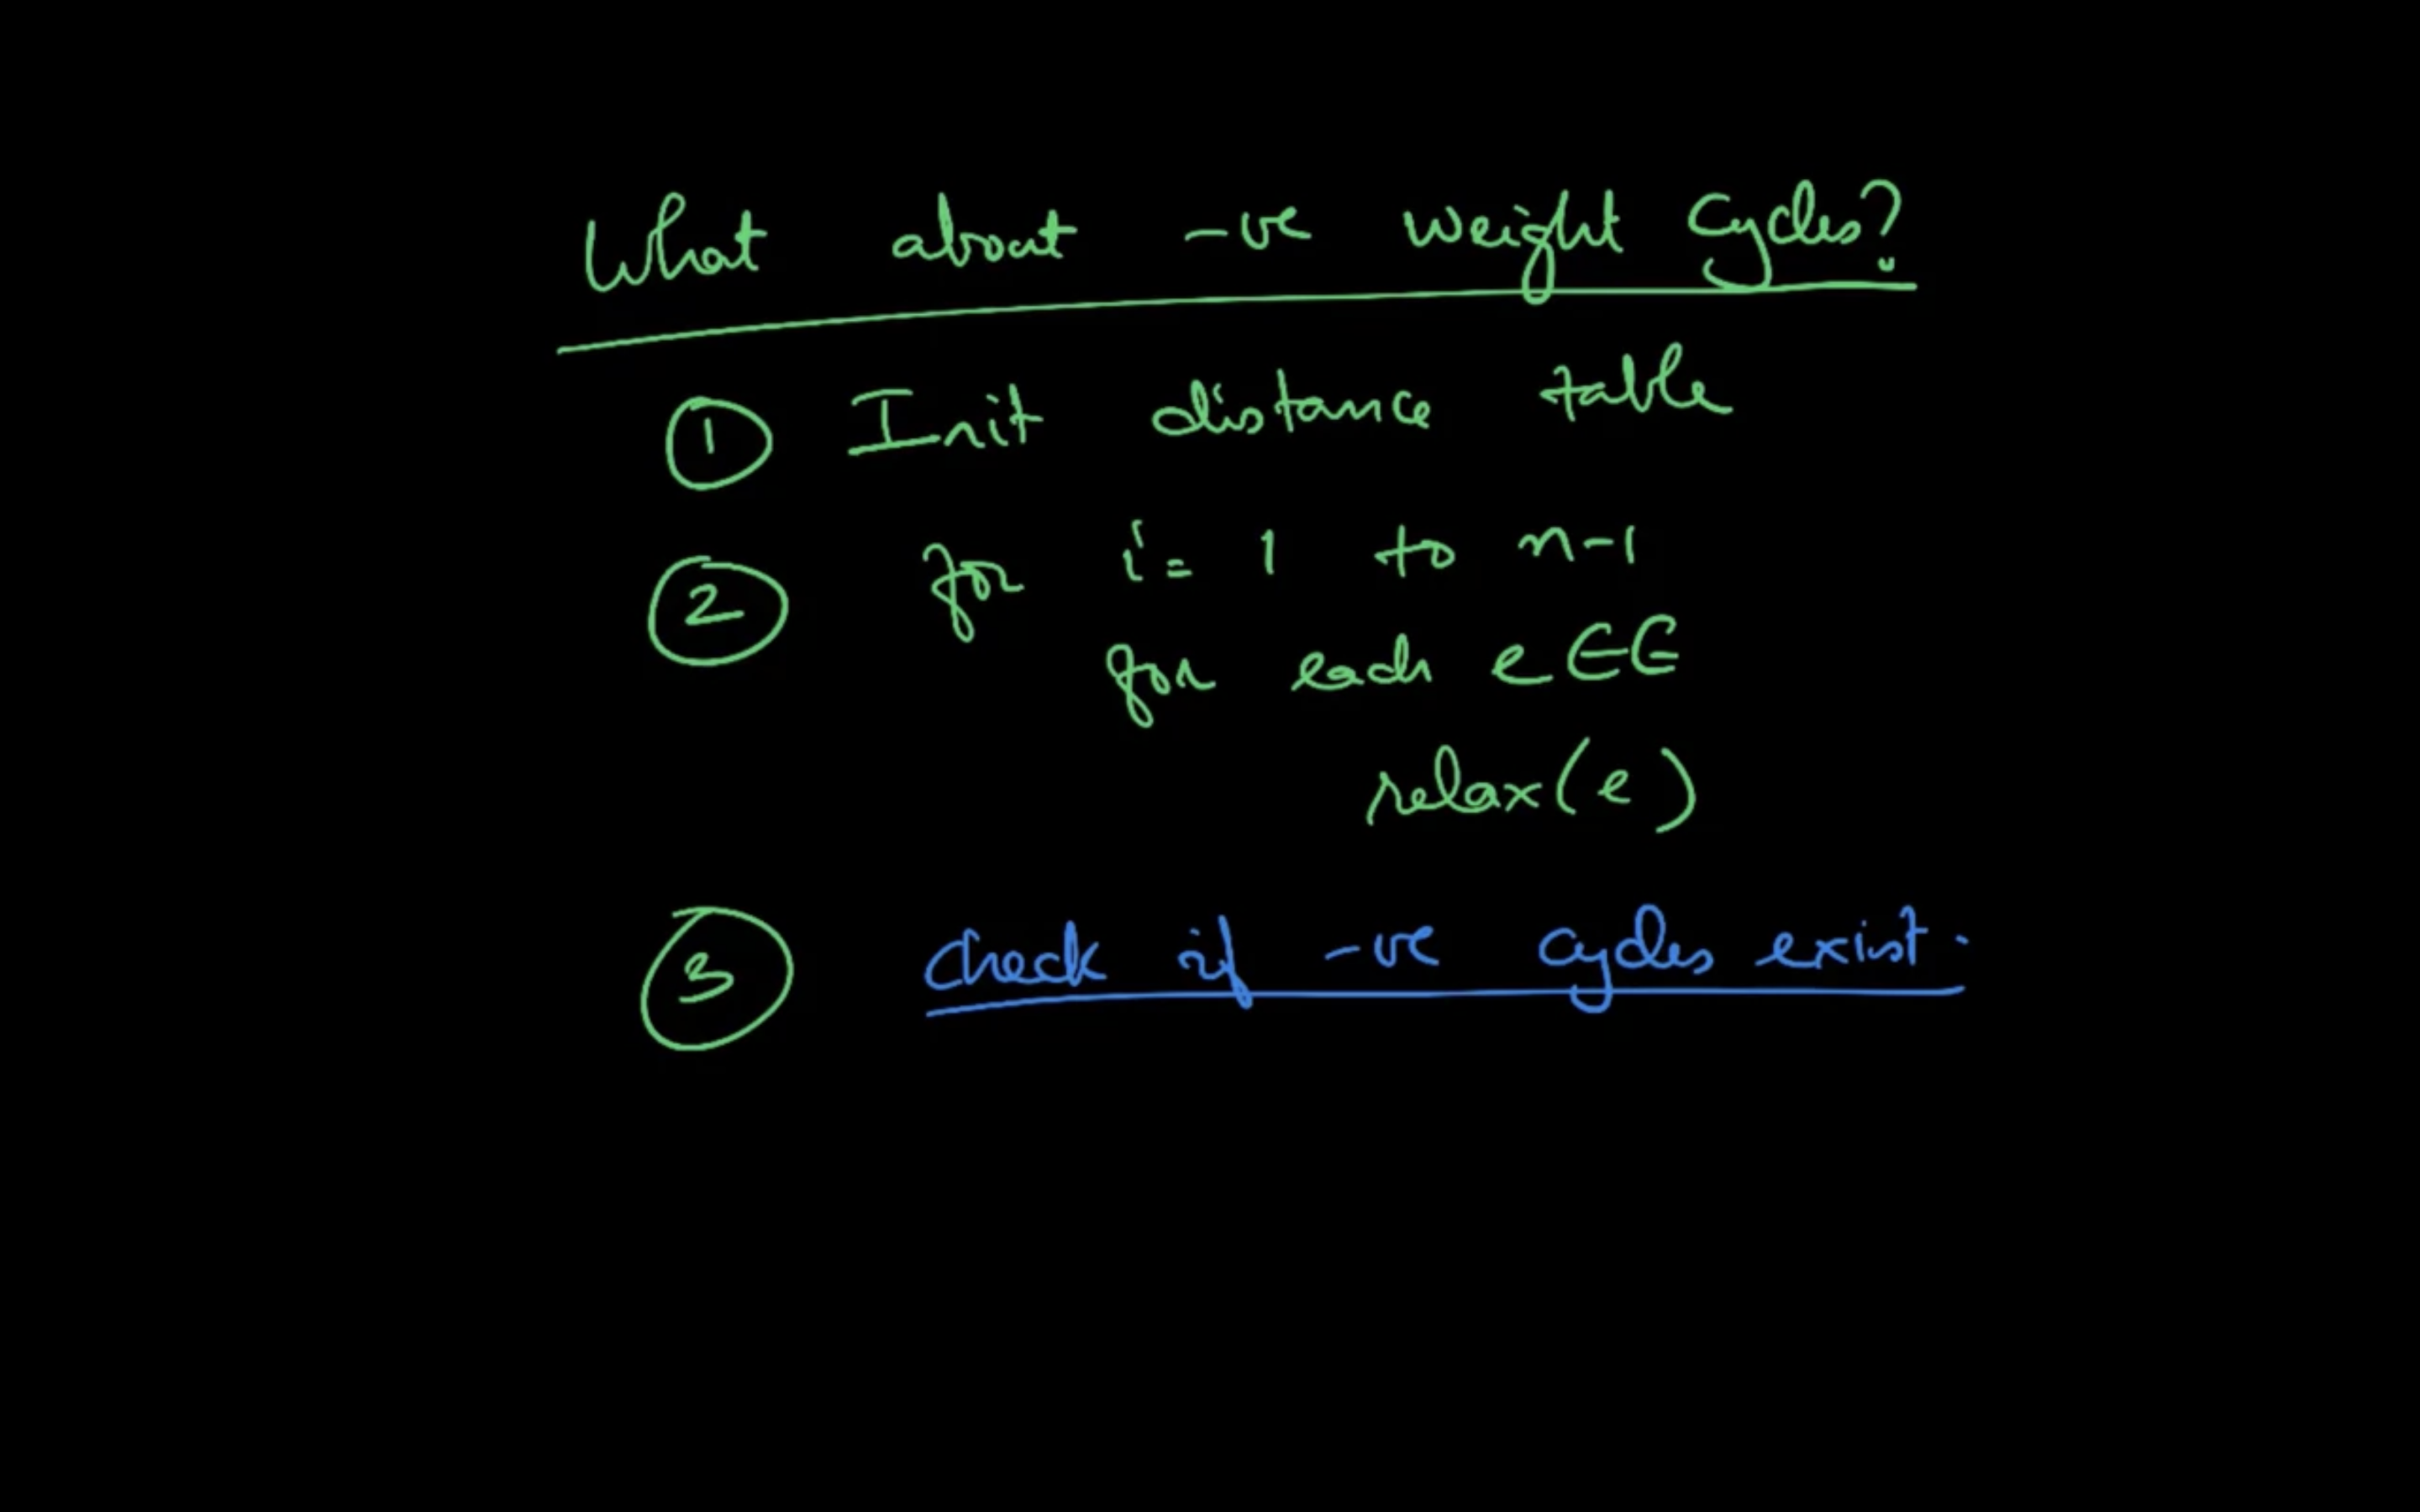 What about -ve weight cycles?
① Init distance table
② for i = 1 to n-1
for each e ∈ E
relax(e)
③ check if -ve cycles exist.